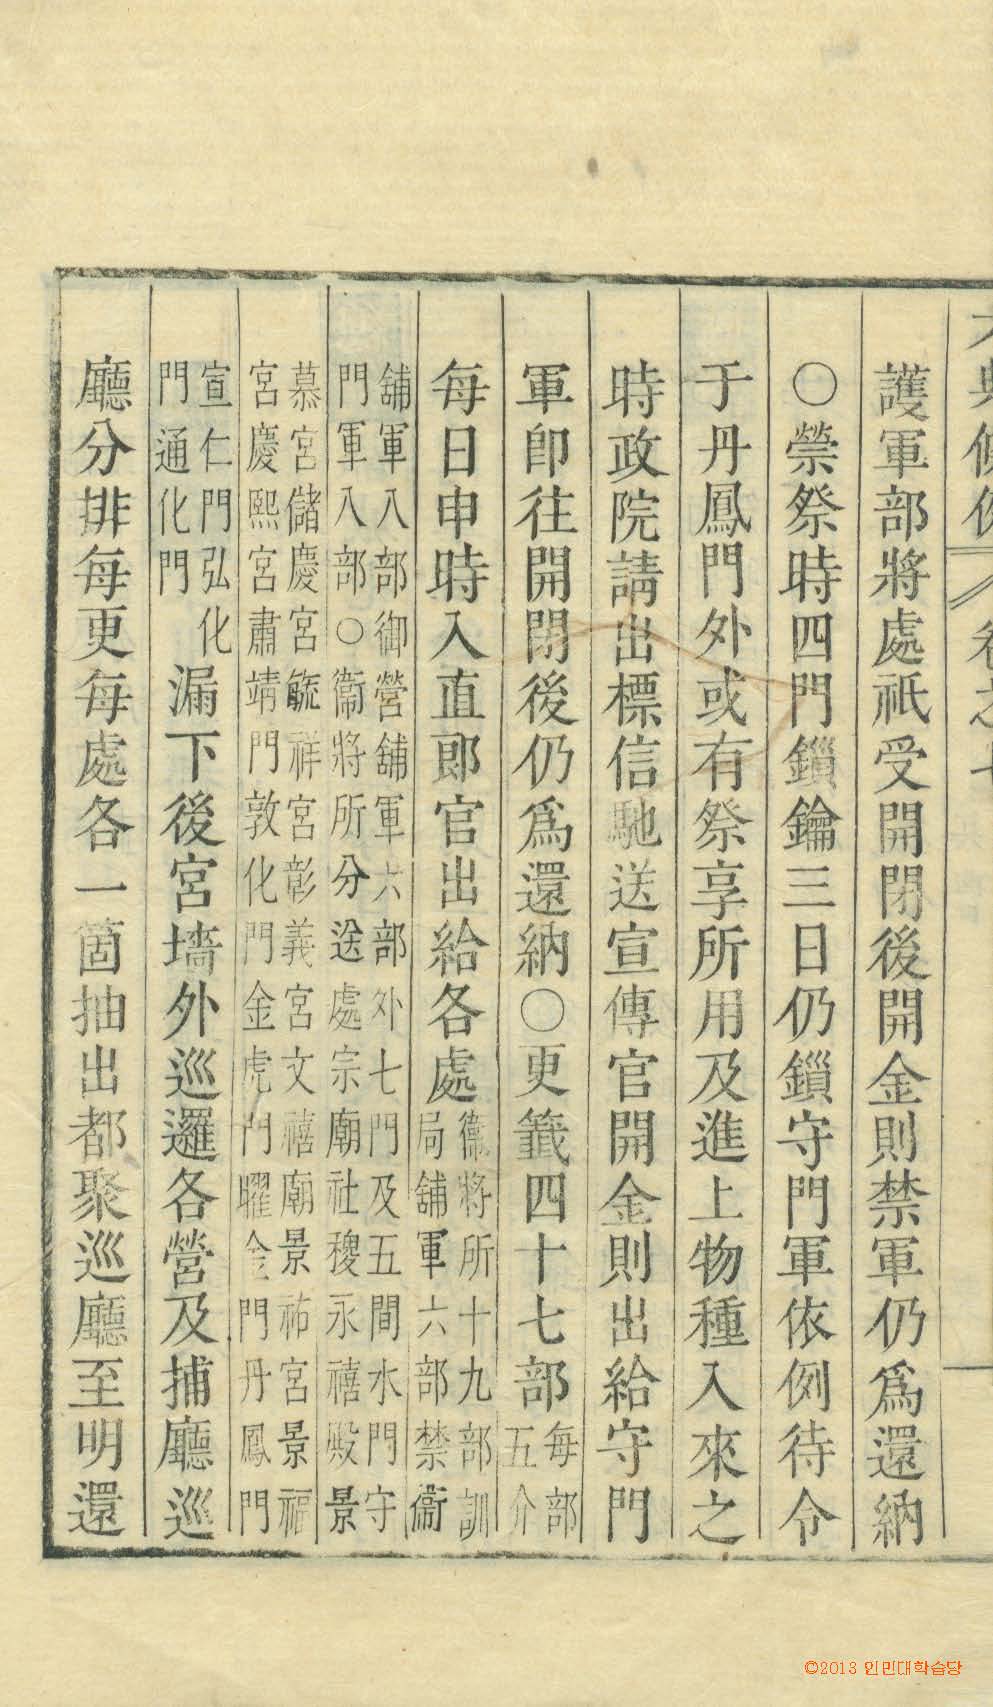 護軍部將處祗受開閉後開金則禁軍仍爲還納
○禜祭時四門鎖鑰三日仍鎖守門軍依例待令
于丹鳳門外或有祭享所用及進上物種入來之
時政院請出標信馳送宣傳官開金則出給守門
軍卽往開閉後仍爲還納○更籤四十七部每部五介
每日申時入直郞官出給各處衛將所十九部訓局舖軍六部禁衛
舖軍八部御營舖軍六部外七門及五間水門守門軍八部○衛將所分送處宗廟社稷永禧殿景
慕宮儲慶宮毓祥宮彰義宮文禧廟景祐宮景福宮慶熙宮肅靖門敦化門金虎門曜金門丹鳳門
宣仁門弘化門通化門漏下後宮墻外巡邏各營及捕廳巡
廳分排每更每處各一箇抽出都聚巡廳至明還
©2013 인민대학습당